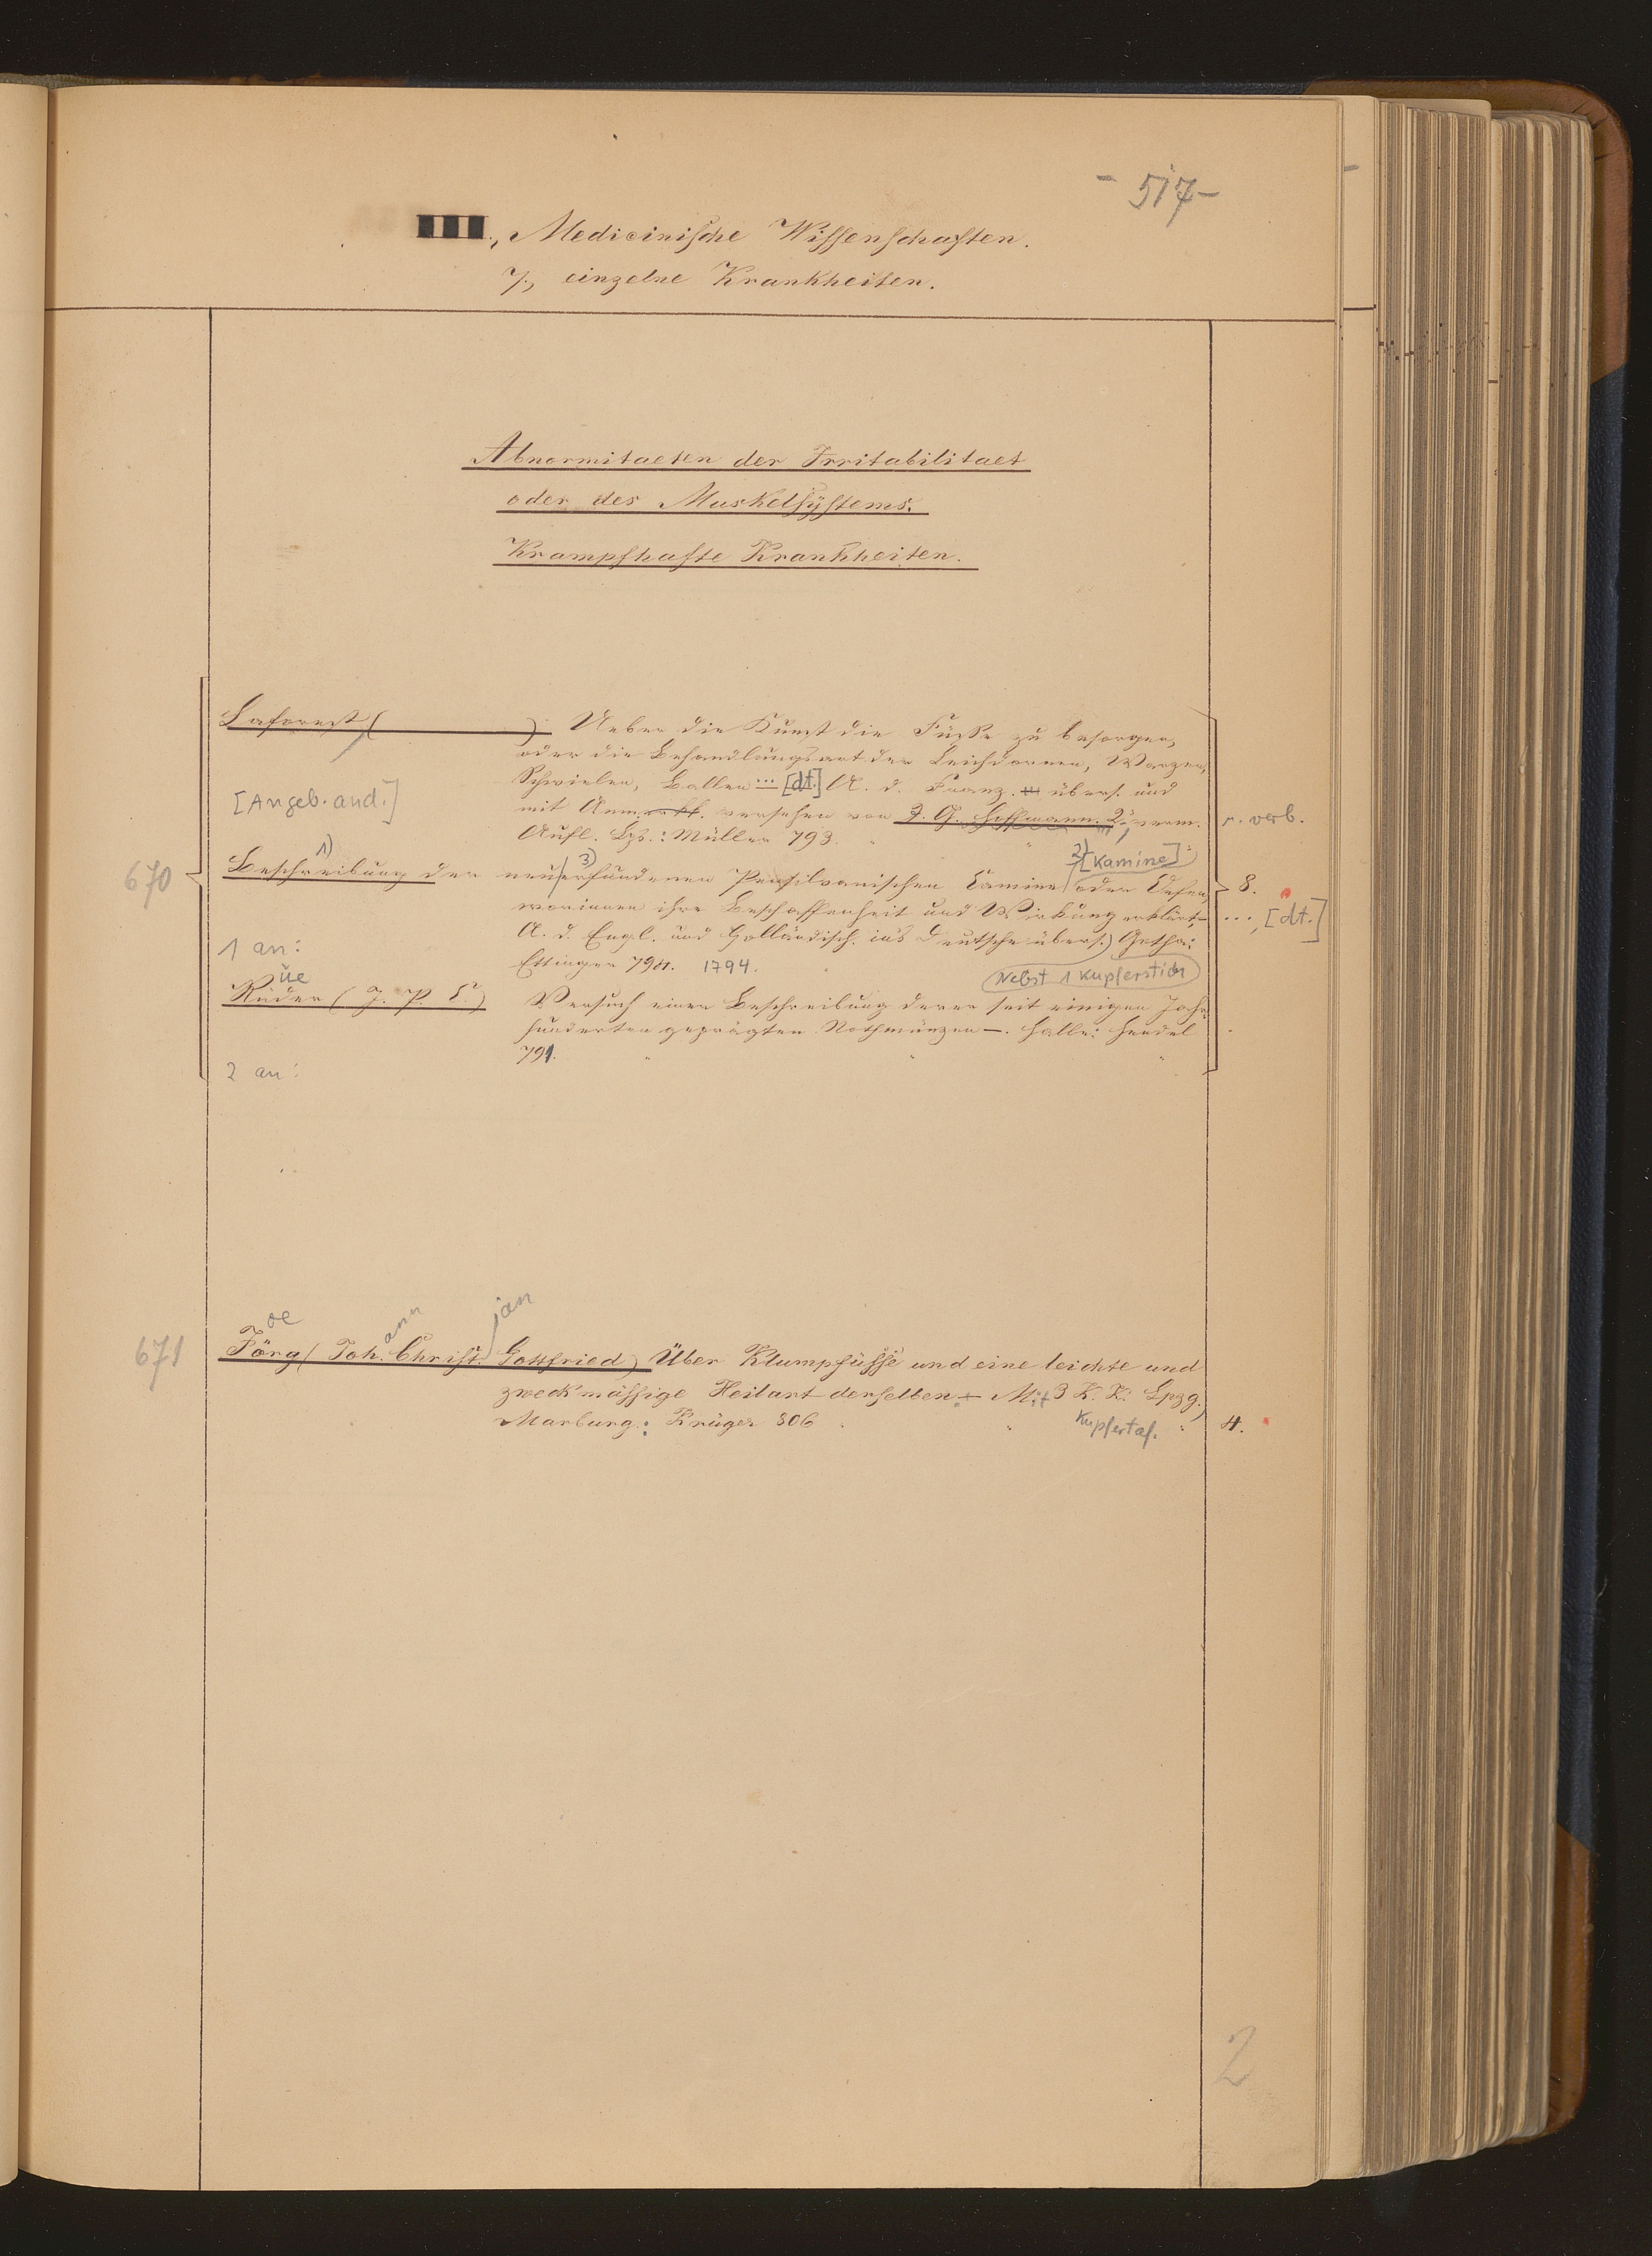 - 517 -
III., Medicinische Wissenschaften.
7., einzelne Krankheiten.
Abnormitaeten der Irritabilitaet
oder des Muskelsÿstems.
Krampfhafte Krankheiten.
Laforest ( ) Ueber die Kunst die Füsse zu besorgen,
oder die Behandlungsart der Leichdornen, Warzen,
Schwielen, Ballen ... [dt.] A. d. Franz. übers. und
[Angeb. and.]
mit Anmerkk. versehen von J. G. Hoffmann. 2., verm.
r. verb.
Aufl. Lpz.: Müller 793.
1) 3) 2) [Kamine]
670 Beschreibung der neu erfundenen Pensilvanischen Camine oder Oefen, 8.
worinnen ihre Beschaffenheit und Wirkung erklärt,– ..., [dt.]
1 an: A. d. Engl. und Holländisch. ins Deutsche übers.) Gotha:
Ettinger 794. 1794. Nebst 1 Kupferstich
ue
Rüder (J. P. C.) Versuch einer Beschreibung derer seit einigen Jahr-
hunderten geprägten Nothmünzen –. Halle: Hendel
791.
2 an:
oe ann jan
671 Jörg (Joh. Christ. Gottfried) Über Klumpfüsse und eine leichte und
zweckmässige Heilart derselben. – Mit 3 K. K. Lpzg.
Marburg: Krüger 806 Kupfertaf. 4.
2